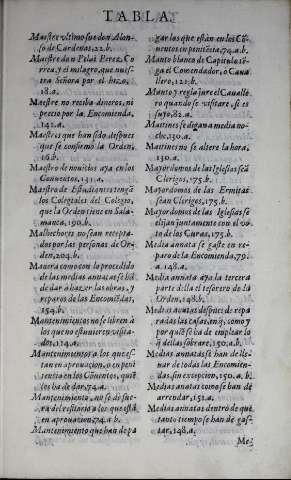 TABLA
Maestre vltimo fue don Alon-
so de Cardenas, 22.b.
Maestre dan Pelai Perez Co-
rrea, y el milagro, que nues-
tra Señora por el hizo,
18.a.
Maestre no reciba dineros, ni
precio por la Encomienda,
141.a.
Maestres que han sido despues
que se confirmo la Orden,
16.b.
Maestro de nouicios aya en los
Conuentos, 131.a.
Maestro de Estudiantes tengā
los Colegiales del Colegio,
que la Orden tiene en Sala-
manca, 190.b.
Malhechores no sean recepta-
dos por las personas de Or-
den, 204.b.
Manera como con lo procedido
de las medias annatas se hā
de dar a hazer las obras, y
reparos de las Encomiēdas,
154.b.
Mantenimientos no se libren à
los que no estuuieren visita-
dos, 114.a.
Mantenimientos a los que es-
tan en aprouacion, o en peni-
tencia en los Cōuentos, quiē
los ha de dar, 74.a.
Mantenimiento, no se descuē-
ta del vestuario a los que està
en aprouacion, 74.a.b.
Mantenimiento que han de pa
gar las que estàn en los Cō-
uentos en penitēcia, 74.a.b.
Manto blanco de Capitulo tē-
ga el Comendador, o Caua-
llero, 121.b.
Manto y regla jure el Cauallē-
ro quando se visitare, si es
suyo, 82.a.
Maitines se digan a media no-
che, 130.a.
Maitines no se altere la hora,
130.a.
Mayordomos de las Iglesias seā
Clerigos, 175.b.
Mayordomos de las Ermitas
sean Clerigos, 175.b.
Mayordomos de las Iglesias se
elijan juntamente con el vo-
to de los Curas, 175.b.
Media annata se gaste en repa-
ro de la Encomienda, 791.
a. 148.a.
Media annata aya la tercera
parte della el tesorero de la
Orden, 148.b.
Medias annatas despues de repa-
radas las casas, en q̄, como y
por quiē se ha de emplear lo
q̄ dellas sobrare, 150.a.b.
Medias annatas se han de lle-
uar de todas las Encomien-
das, sin excepcion, 150.a.b.
Medias annatas como se han de
arrendar, 151.a.
Medias annatas dentro de quā
tanto tiempo se han de gas-
tar, 148.a.
Me-